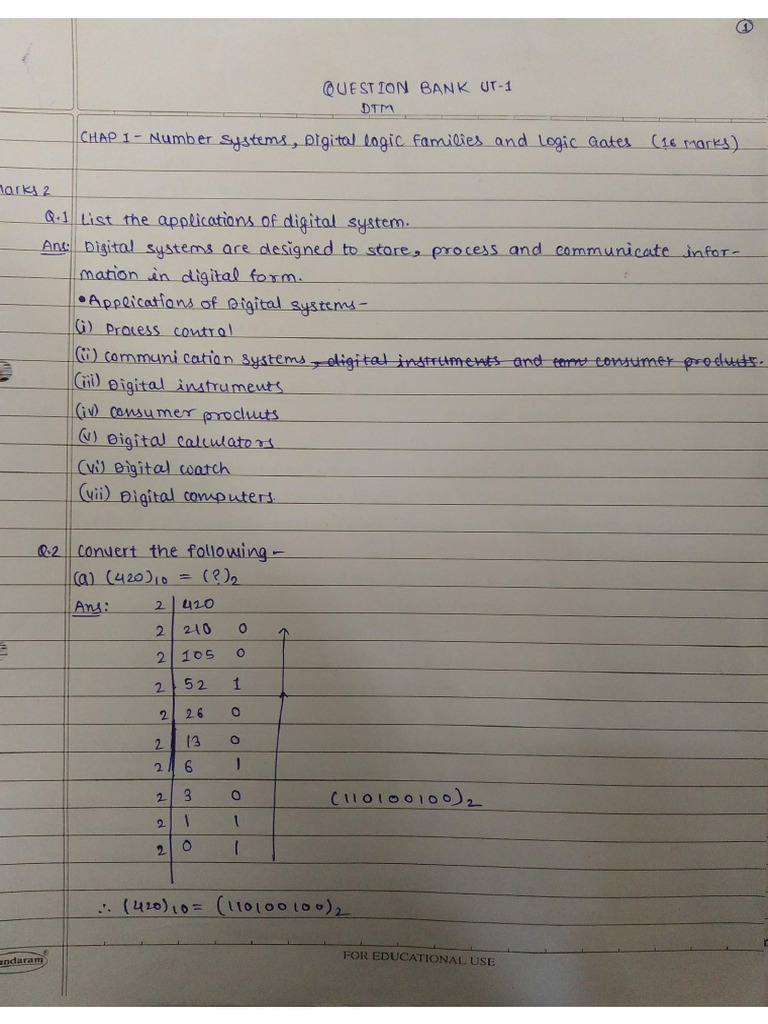 1
QUESTION BANK UT-1
DTM
CHAP I - Number systems, Digital Logic Families and Logic Gates (16 Marks)
Marks 2
Q.1 List the applications of digital system.
Ans: Digital systems are designed to store, process and communicate infor-
mation in digital form.
• Applications of Digital systems-
(i) Process control
(ii) communication systems, digital instruments and com consumer products.
(iii) Digital instruments
(iv) consumer products
(v) Digital calculators
(vi) Digital watch
(vii) Digital computers.
Q.2 Convert the following -
(a) (420)10 = (?)2
Ans: 2 420
2 210 0
2 105 0
2 52 1
2 26 0
2 13 0
2 6 1
2 3 0 (110100100)2
2 1 1
2 0 1
∴ (420)10 = (110100100)2
FOR EDUCATIONAL USE